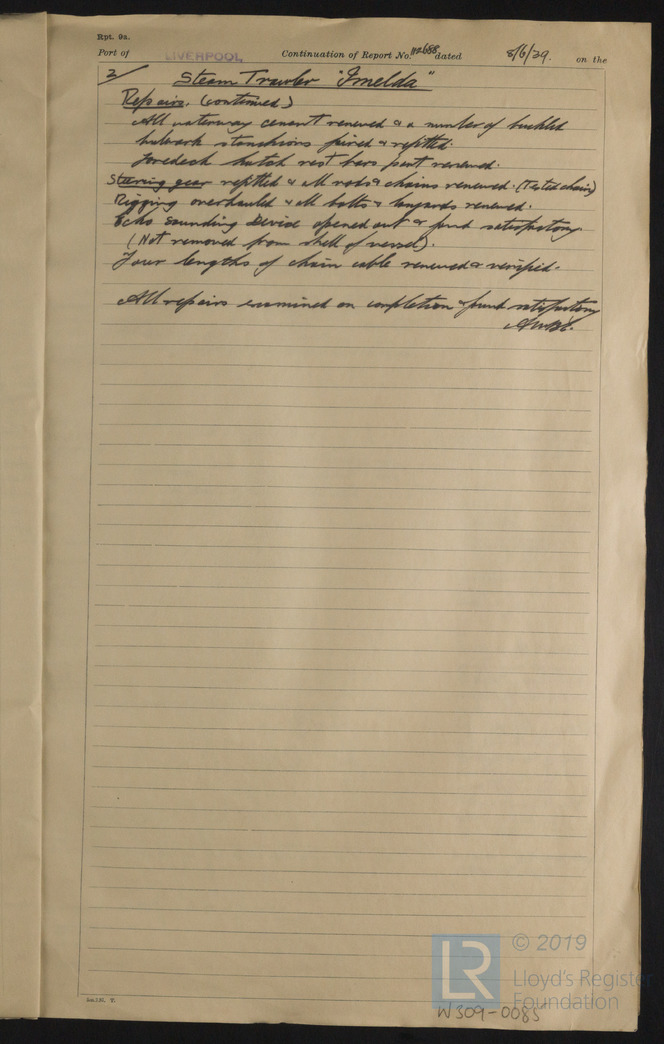 Rpt. 9a.
Port of LIVERPOOL Continuation of Report No. 112688 dated 8/6/39. on the
2/ Steam Trawler "Imelda"
Repairs. (continued)
All waterway cement renewed & a number of buckled
bulwark stanchions faired & refitted.
Foredeck hatch rest bars part renewed.
Steering gear refitted & all rods & chains renewed. (Tested chain)
Rigging overhauled & all bolts & lanyards renewed.
Echo Sounding Device opened out & found satisfactory.
(Not removed from shell of vessel).
Four lengths of chain cable renewed & verified.
All repairs examined on completion & found satisfactory
© 2019
LR
Lloyd's Register
Foundation
W309-0085